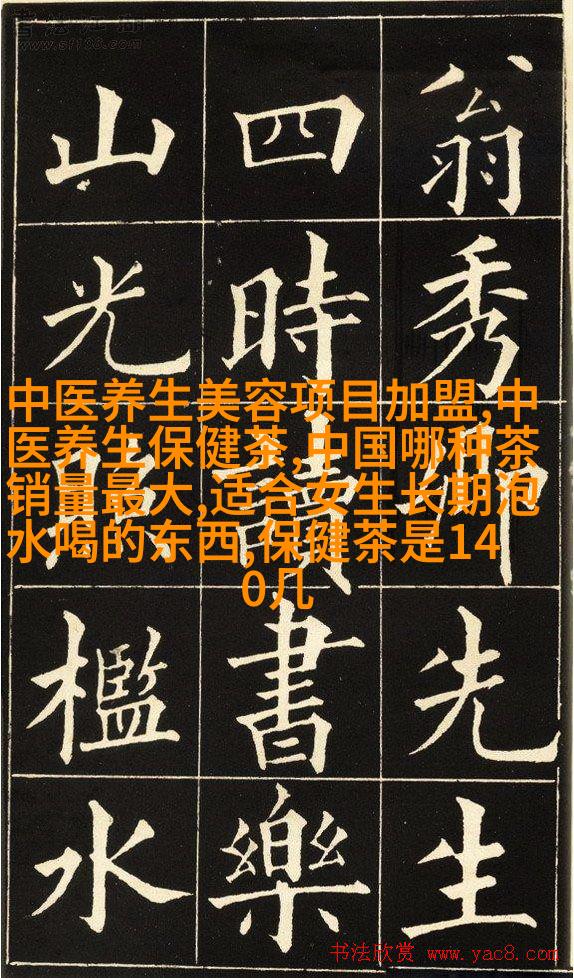 www.sf108.com
翁秀卿先生
四時讀書樂
山光照檻水
中医养生美容项目加盟,中
医养生保健茶,中国哪种茶
销量最大,适合女生长期泡
水喝的东西,保健茶是14
0几
书法欣赏 www.yac8.com